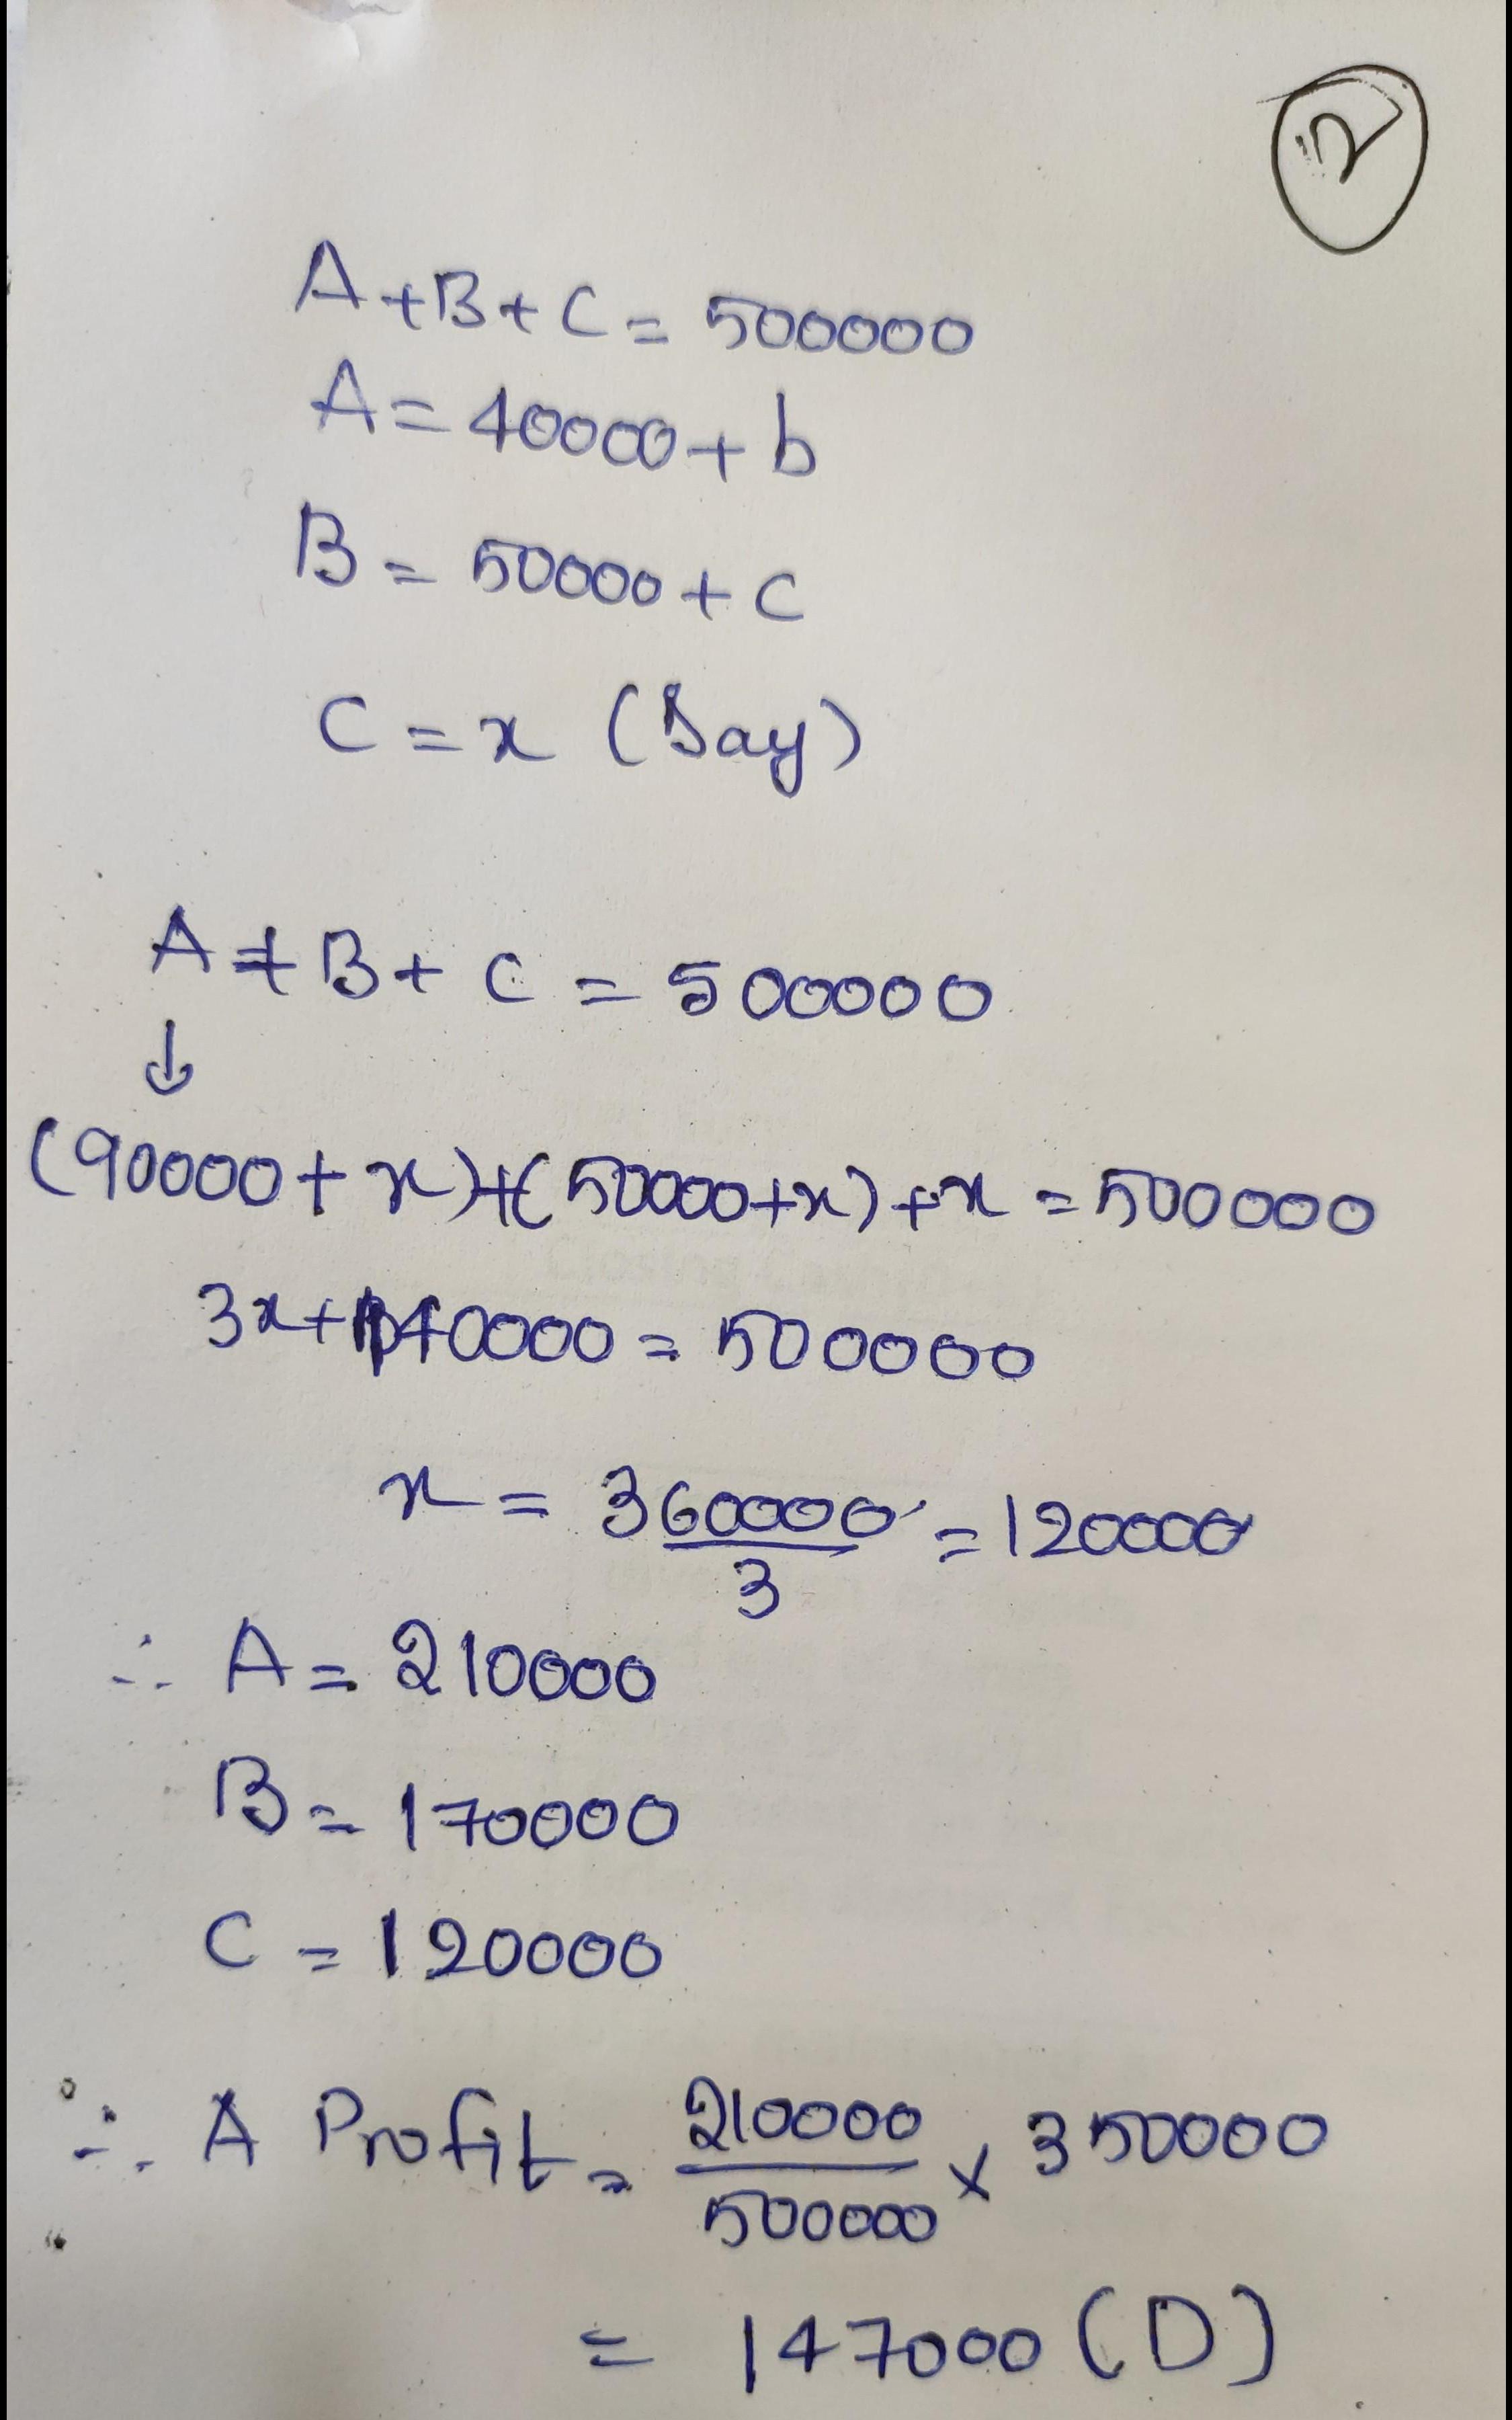 2
A+B+C = 500000
A = 40000 + b
B = 50000 + C
C = x (Say)
A + B + C = 500000
↓
(90000 + x) + (50000+x) + x = 500000
3x + 140000 = 500000
x = 360000/3 = 120000
∴ A = 210000
B = 170000
C = 120000
∴ A Profit = 210000/500000 × 350000
= 147000 (D)